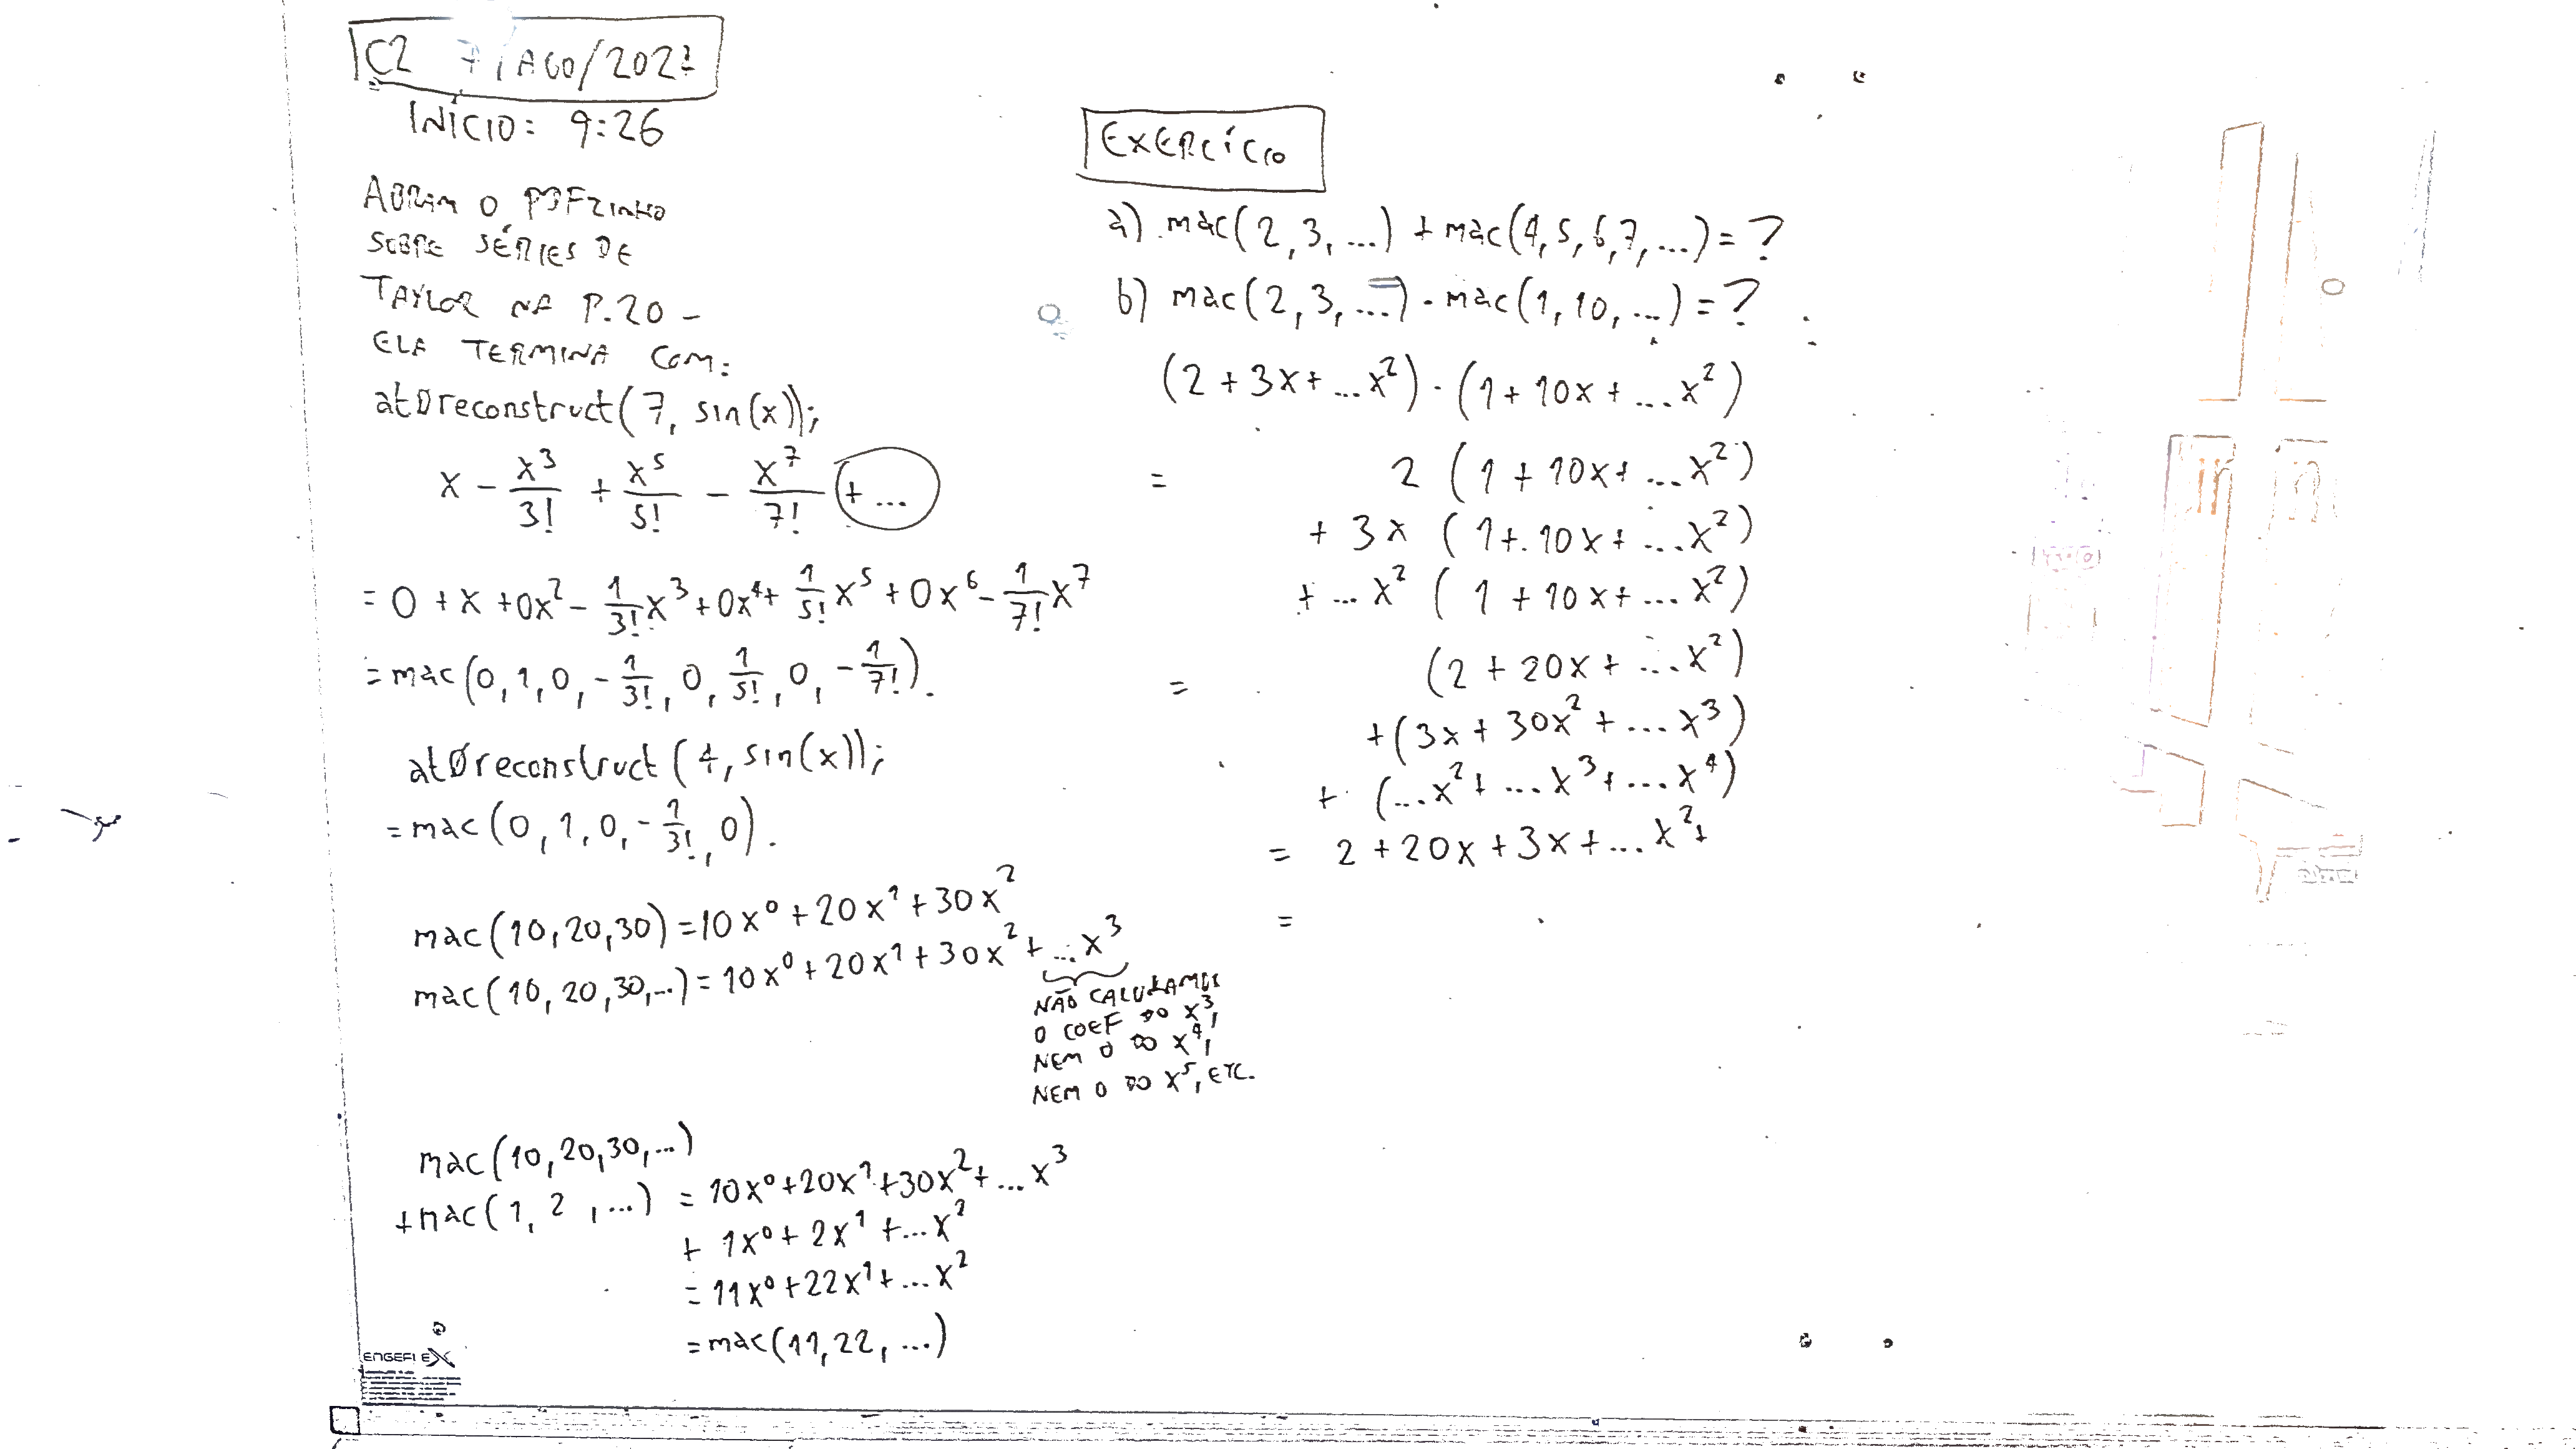 C2 7/AGO/202
INÍCIO: 9:26
ABRAM O PDFZINHO
SOBRE SÉRIES DE
TAYLOR NA P.20 –
ELA TERMINA COM:
at0reconstruct(7, sin(x));
x - x³/3! + x⁵/5! - x⁷/7! + ...
= 0 + x + 0x² - 1/3! x³ + 0x⁴ + 1/5! x⁵ + 0x⁶ - 1/7! x⁷
= mac(0, 1, 0, -1/3!, 0, 1/5!, 0, -1/7!).
at0reconstruct(4, sin(x));
= mac(0, 1, 0, -1/3!, 0).
mac(10,20,30) = 10x⁰ + 20x¹ + 30x²
mac(10,20,30,...) = 10x⁰ + 20x¹ + 30x² + ...x³
NÃO CALCULAMOS
O COEF DO x³,
NEM O DO x⁴,
NEM O DO x⁵, ETC.
mac(10,20,30,...)
+mac(1, 2, ...) = 10x⁰ + 20x¹ + 30x² + ...x³
+ 1x⁰ + 2x¹ + ...x²
= 11x⁰ + 22x¹ + ...x²
= mac(11, 22, ...)
ENGEFLEX
EXERCÍCIO
a) mac(2,3,...) + mac(4,5,6,7,...) = ?
b) mac(2,3,...) · mac(1,10,...) = ?
(2 + 3x + ...x²) · (1 + 10x + ...x²)
= 2 (1 + 10x + ...x²)
+ 3x (1 + 10x + ...x²)
+ ...x² (1 + 10x + ...x²)
= (2 + 20x + ...x²)
+ (3x + 30x² + ...x³)
+ (...x² + ...x³ + ...x⁴)
= 2 + 20x + 3x + ...x² +
=